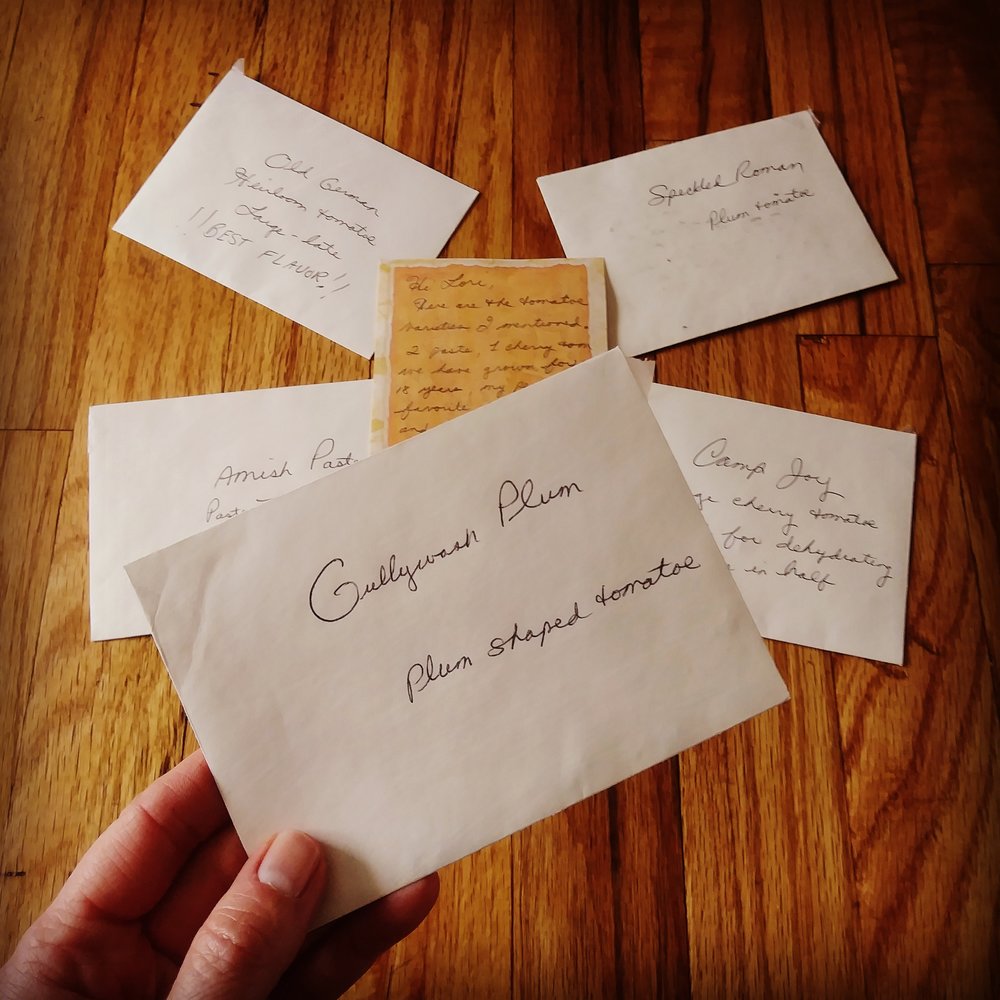 Old German
Heirloom tomatoe
Large - late
!!BEST FLAVOR!!
Speckled Roman
Plum tomatoe
Hi Lori,
Here are the tomatoe
varieties I mentioned.
2 paste, 1 cherry
we have grown for
18 years my
favorite
and
Amish Past
Past
Camp Joy
ge cherry tomatoe
for dehydrating
in half
Gullywash Plum
Plum shaped tomatoe